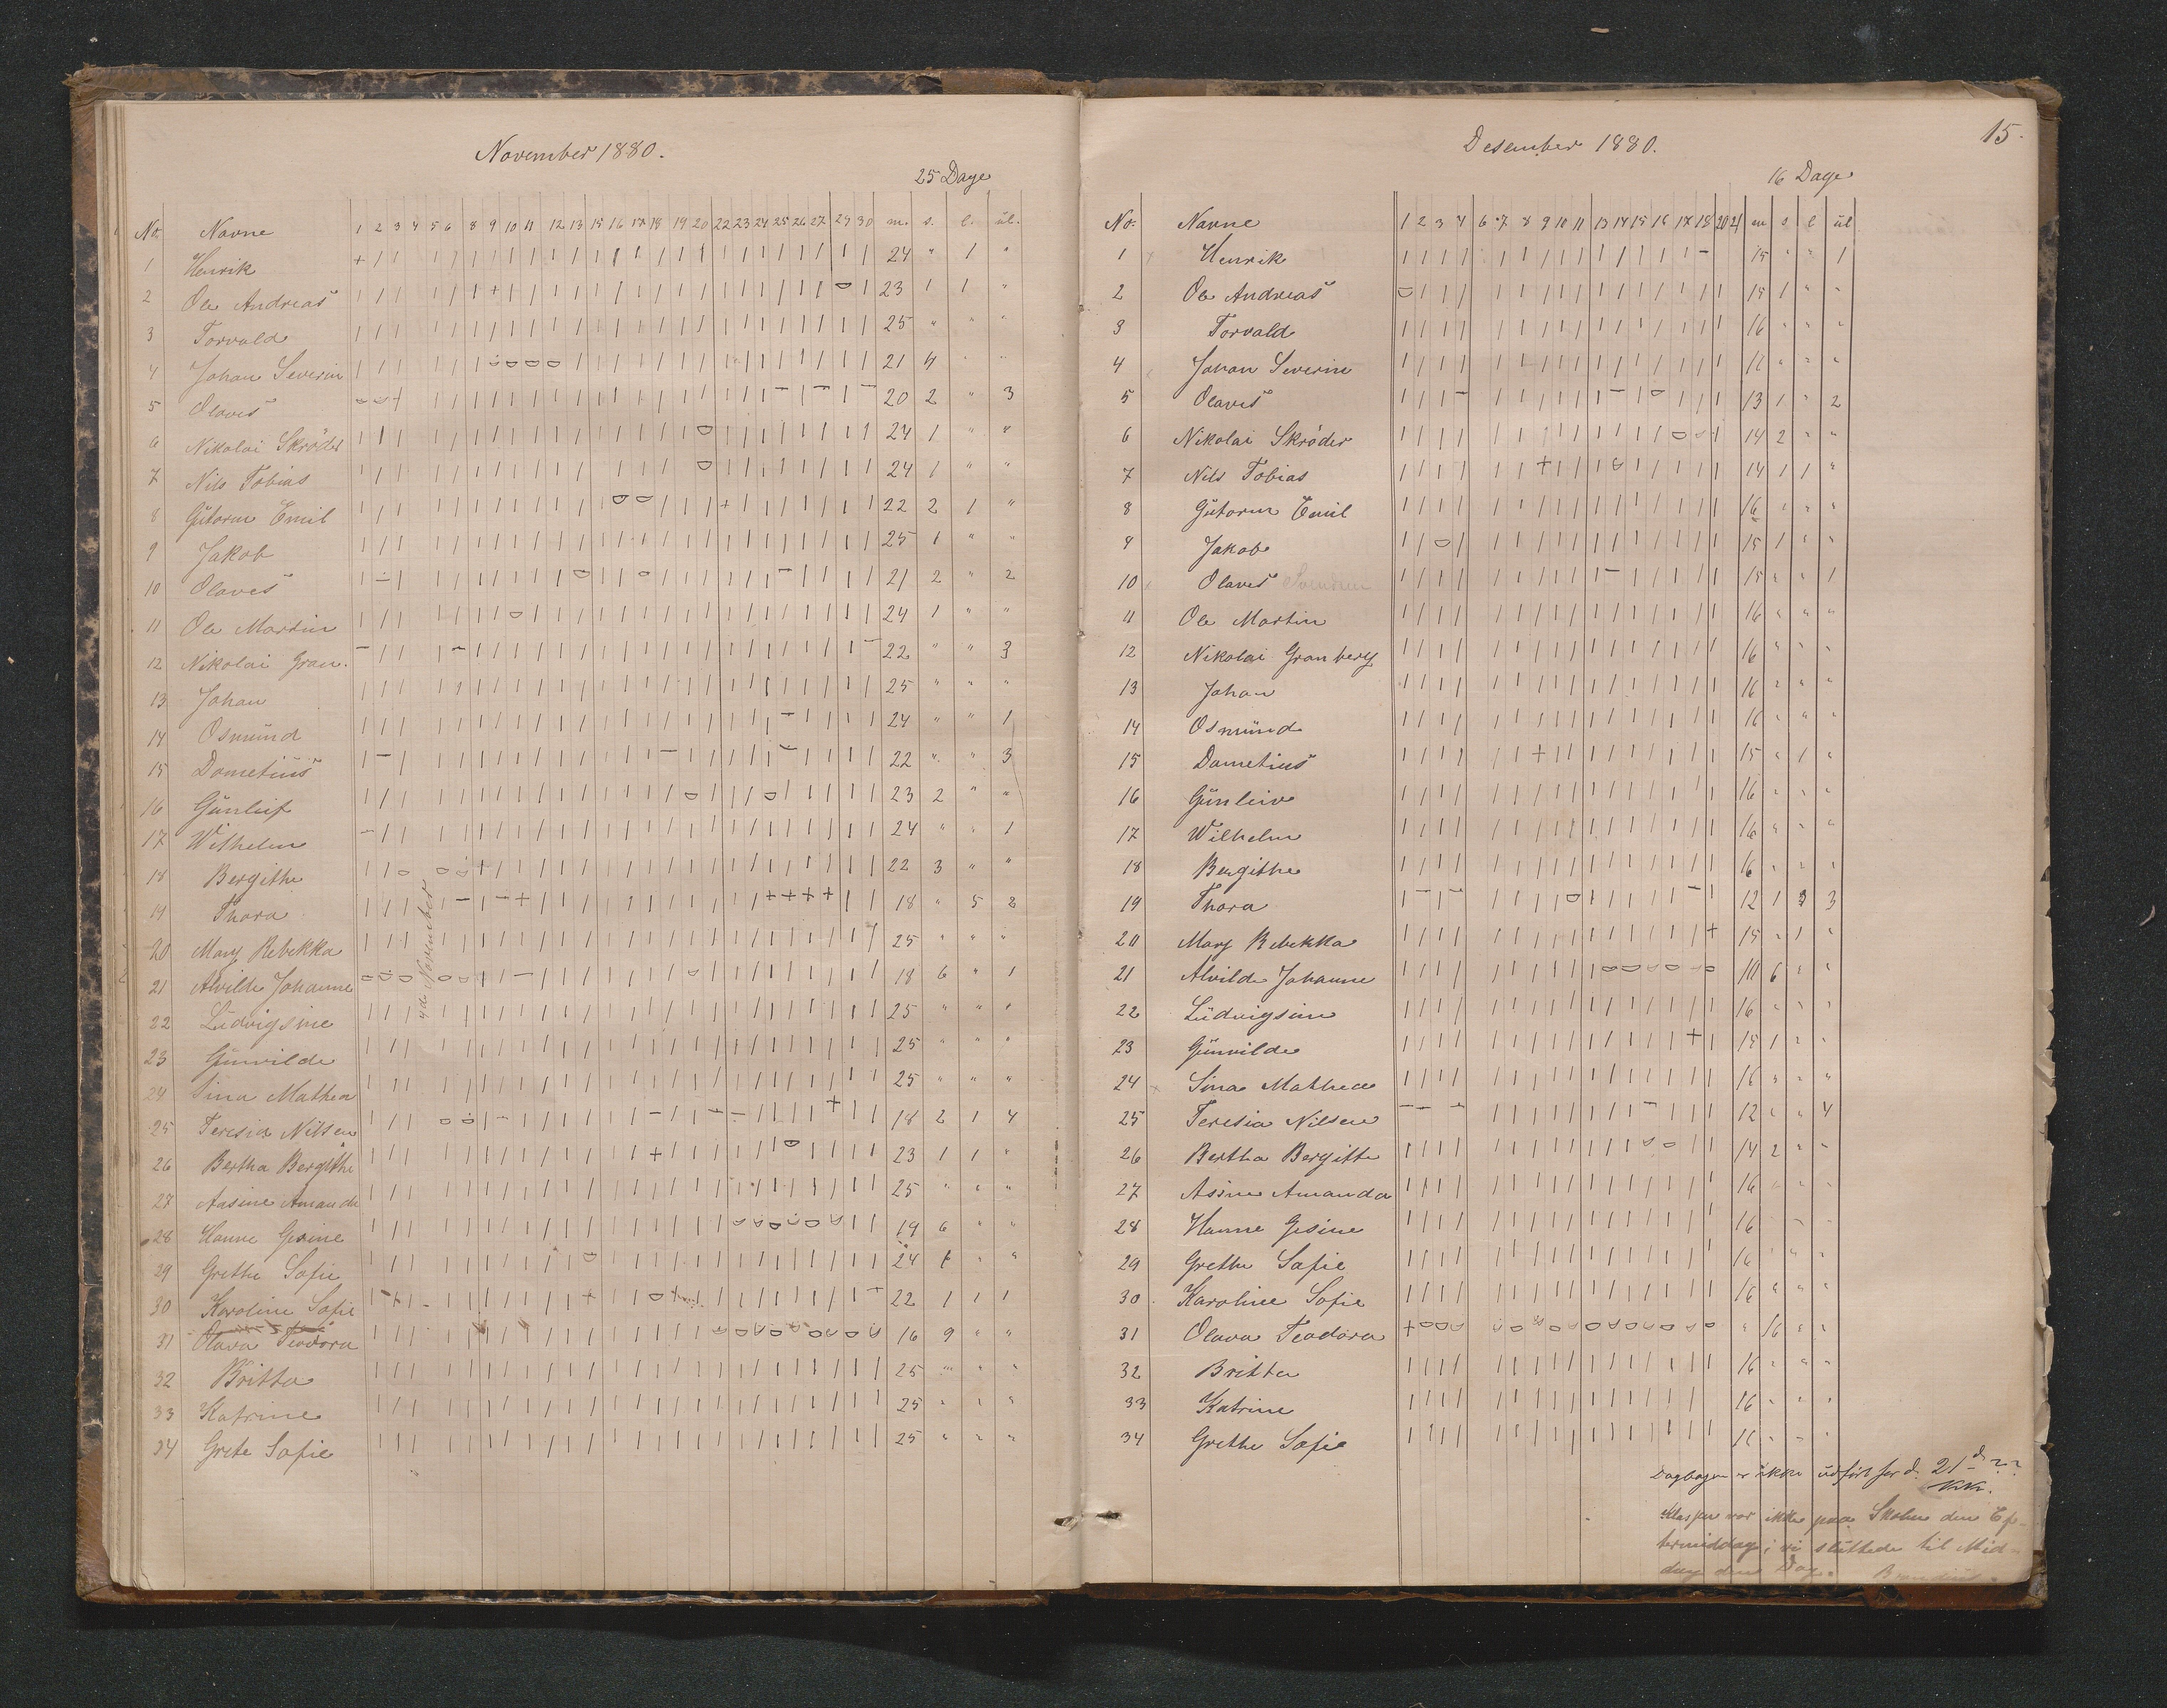 November 1880.
25 Dage
No. Navne 1 2 3 4 5 6 8 9 10 11 12 13 15 16 17 18 19 20 22 23 24 25 26 27 29 30 m. s. l. ul.
1 Henrik 24 " 1 "
2 Ole Andreas 23 1 1 "
3 Torvald 25 " " "
4 Johan Severin 21 4 " "
5 Olaves 20 2 " 3
6 Nikolai Skröder 24 1 " "
7 Nils Tobias 24 1 " "
8 Gutorm Emil 22 2 1 "
9 Jakob 25 1 " "
10 Olaves 21 2 " 2
11 Ole Martin 24 1 " "
12 Nikolai Gran. 22 " " 3
13 Johan 25 " " "
14 Osmund 24 " " 1
15 Dometius 22 " " 3
16 Gunleif 23 2 " "
17 Wilhelm 24 " " 1
18 Bergithe 22 3 " "
19 Thora 18 " 5 2
20 Mary Rebekka 25 " " "
21 Alvilde Johanne 18 6 " 1
22 Ludvigsine 25 " " "
23 Gunvilde 25 " " "
24 Sina Mathea 25 " " "
25 Teresia Nilsen 18 2 1 4
26 Bertha Bergithe 23 1 1 "
27 Aasine Amanda 25 " " "
28 Hanne Gesine 19 6 " "
29 Grethe Sofie 24 1 " "
30 Karoline Sofie 22 1 1 1
31 Olava Teodora 16 9 " "
32 Britta 25 " " "
33 Katrine 25 " " "
34 Grete Sofie 25 " " "
4de November
15.
Desember 1880.
16 Dage
No. Navne 1 2 3 4 6 7 8 9 10 11 13 14 15 16 17 18 20 21 m s l ul
1 Henrik 15 " " 1
2 Ole Andreas 15 1 " "
3 Torvald 16 " " "
4 Johan Severin 16 " " "
5 Olaves 13 1 " 2
6 Nikolai Skröder 14 2 " "
7 Nils Tobias 14 1 1 "
8 Gutorm Emil 16 " " "
9 Jakob 15 1 " "
10 Olaves 15 " " 1
11 Ole Martin 16 " " "
12 Nikolai Granberg 16 " " "
13 Johan 16 " " "
14 Osmund 16 " " "
15 Dometius 15 " 1 "
16 Gunleiv 16 " " "
17 Wilhelm 16 " " "
18 Bergithe 16 " " "
19 Thora 12 1 3
20 Mary Rebekka 15 " 1 "
21 Alvilde Johanne 10 6 " "
22 Ludvigsine 16 " " "
23 Gunvilde 15 1 " "
24 Sina Mathea 16 " " "
25 Teresia Nilsen 12 " " 4
26 Bertha Bergitte 14 2 " "
27 Asine Amanda 16 " " "
28 Hanne Gesine 16 " " "
29 Grethe Sofie 16 " " "
30 Karoline Sofie 16 " " "
31 Olava Teodora " 16 " "
32 Britta 16 " " "
33 Katrine 16 " " "
34 Grethe Sofie 16 " " "
Dagbogen er ikke udført for d. 21 d ??
Klassen var ikke paa Skolen den Ef-
termiddag; vi sluttede til Mid-
dag den Dag.